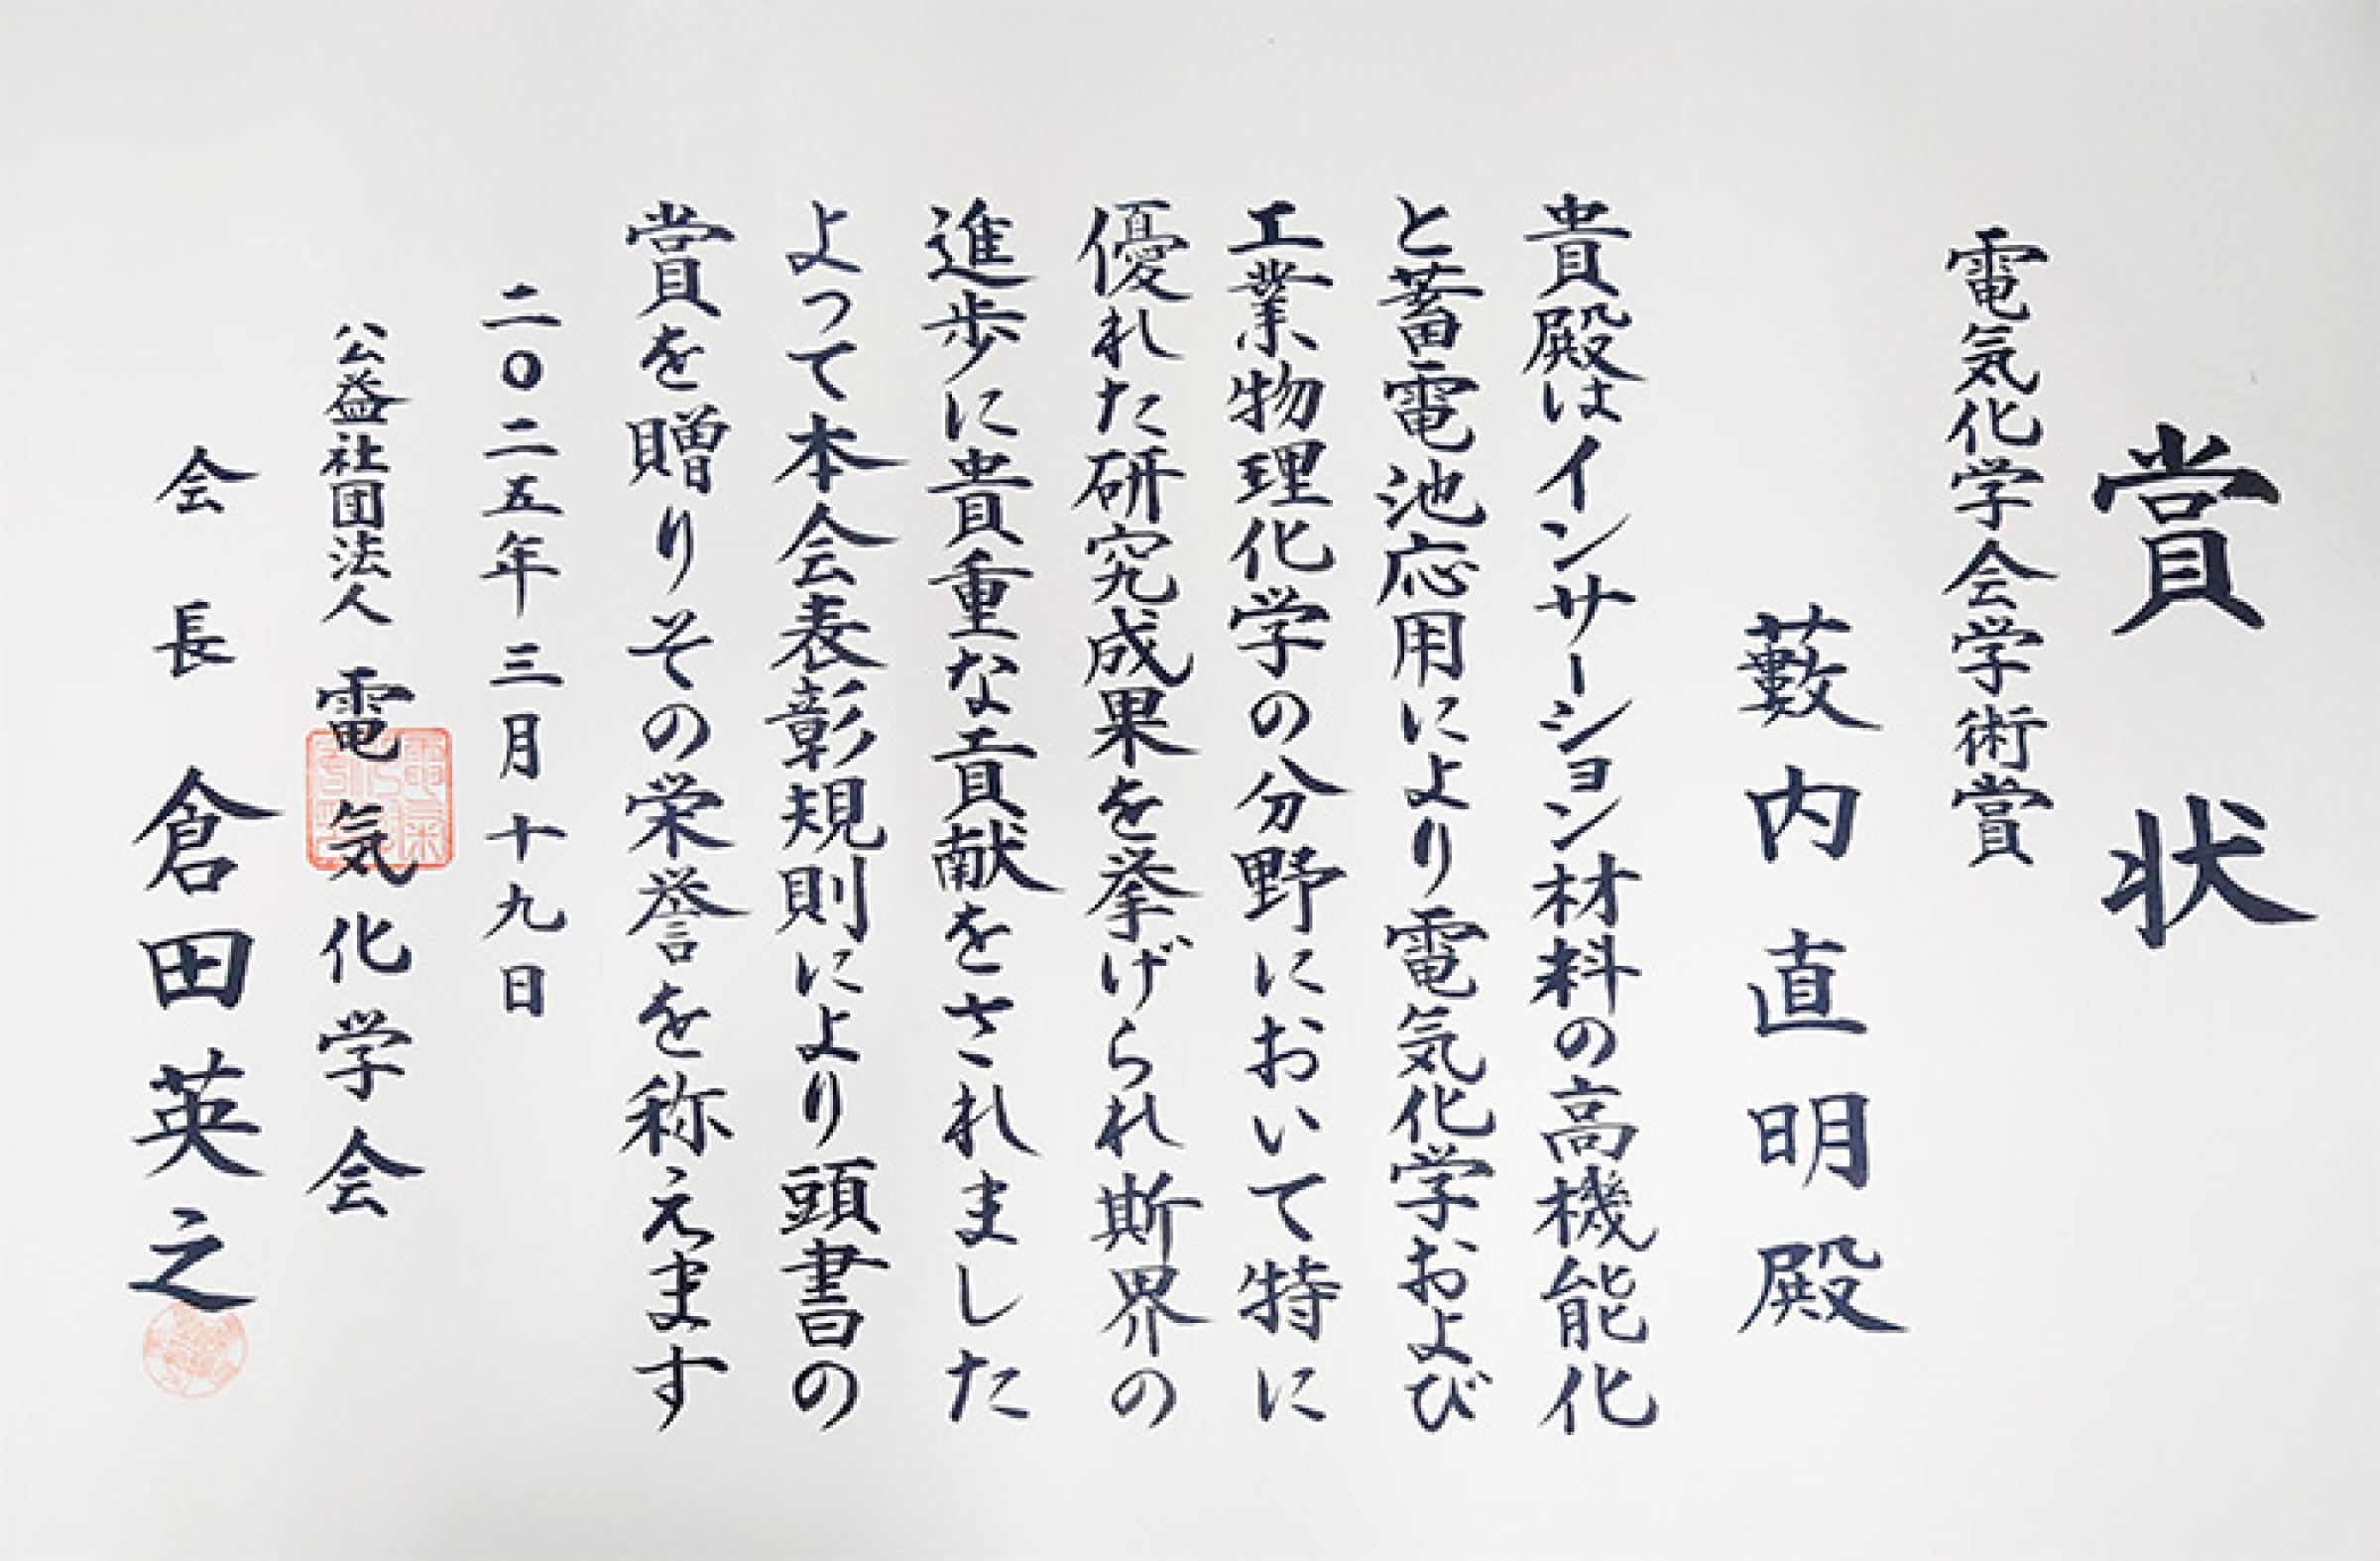 賞状
電気化学会学術賞
藪内直明殿
貴殿はインサーション材料の高機能化
と蓄電池応用により電気化学および
工業物理化学の分野において特に
優れた研究成果を挙げられ斯界の
進歩に貴重な貢献をされました
よって本会表彰規則により頭書の
賞を贈りその栄誉を称えます
二〇二五年三月十九日
公益社団法人電気化学会
会長倉田英之